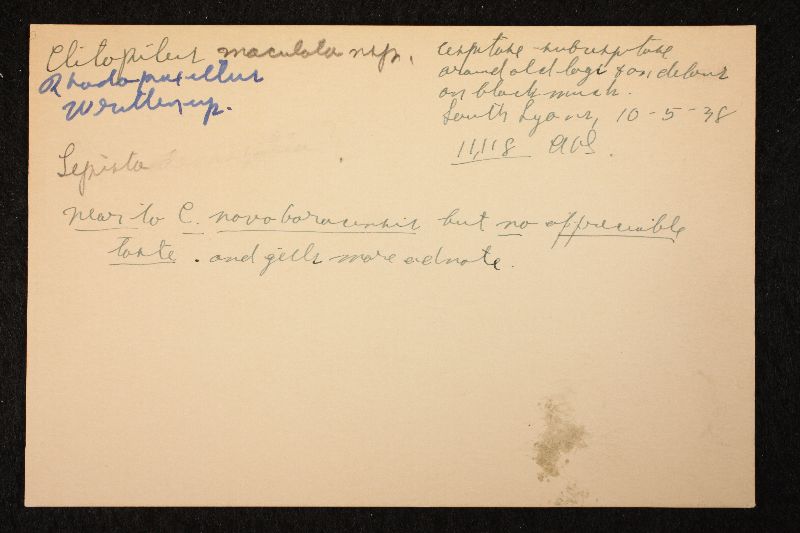 Clitopilus maculata nsp.
Rhodopaxillus
Written up.
Lepista
cespitose - subcespitose
around old logs & on debris
on black muck.
South Lyons, 10-5-38
11,118 AHS.
near to C. noveboracensis but no appreciable
taste . and gills more adnate.